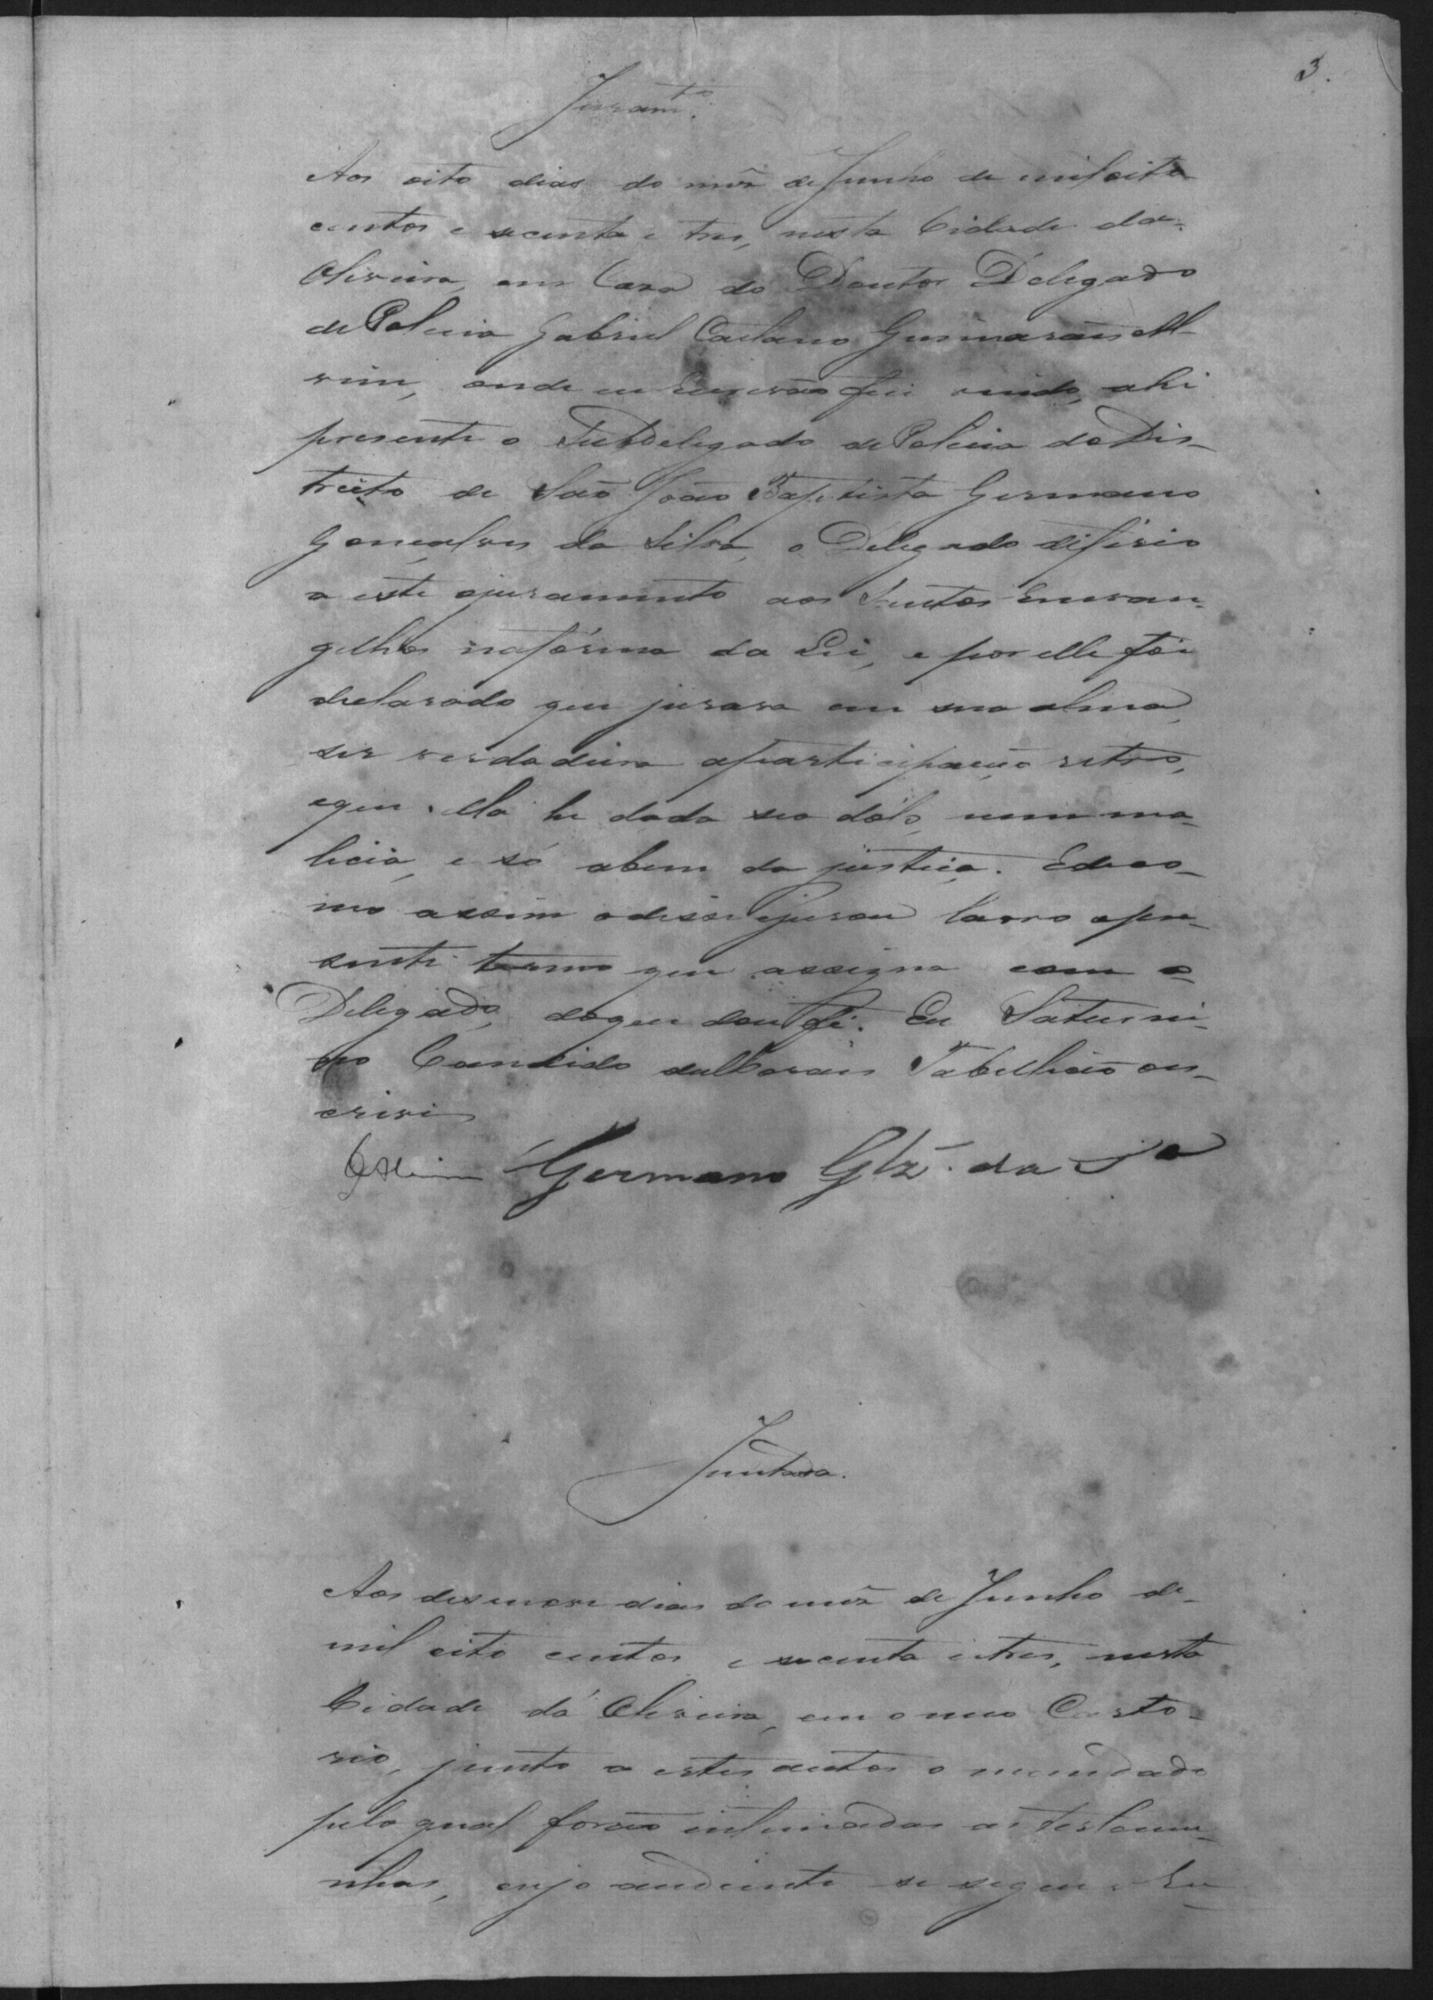 3.
Juram.to
Aos oito dias do mês de Junho de mil oito
centos e secenta e tres, nesta Cidade da
Oliveira, em Caza do Doutor Delegado
de Policia Gabriel Caetano Guimarães Al-
vim, onde eu Escrivão fui vindo, ahi
presente o Subdelegado de Policia do Dis-
tricto de São João Baptista Germano
Gonçalves da Silva, o Delegado diferio
a este o juramento aos Santos Envan-
gelhos na fórma da Lei, e por elle foi
declarado que jurava em sua alma
ser verdadeira a participação retro,
e que ella he dada sem dólo, nem ma-
licia, e só a bem da justiça. E de co-
mo assim o disse e jurou lavro o pre-
sente termo que assigna com o
Delegado, do que dou fé. Eu Saturni-
no Candido Tabellião es-
crevi
Germano Glz. da S.a
Juntada.
Aos desenove dias do mês de Junho de
mil oito centos e secenta e tres, nesta
Cidade da Oliveira, em o meo Carto-
rio, junto a estes autos o mandado
pelo qual forão intimadas as testemu-
nhas, cujo se segue. Eu